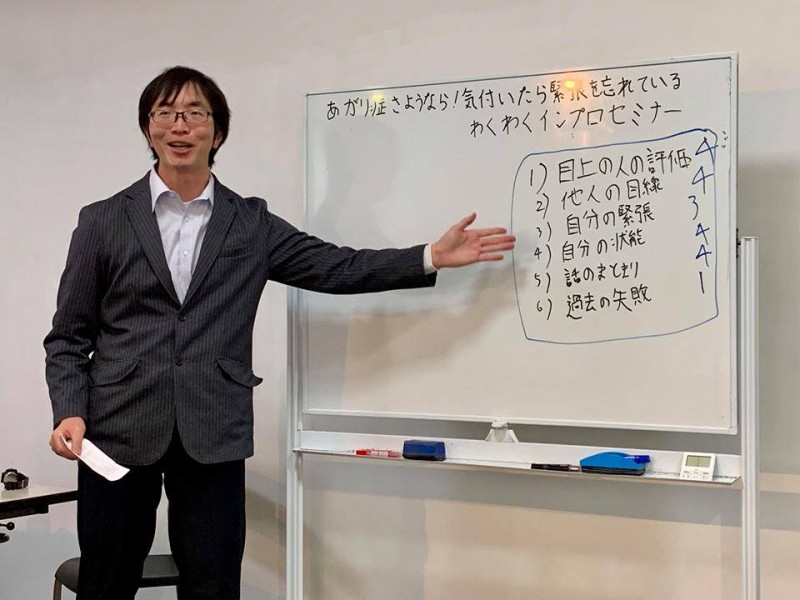 あがり症さようなら！気付いたら緊張を忘れている
わくわくインプロセミナー
1) 目上の人の評価 4
2) 他人の目線 4
3) 自分の緊張 3
4) 自分の状態 4
5) 話のまとまり 4
6) 過去の失敗 1